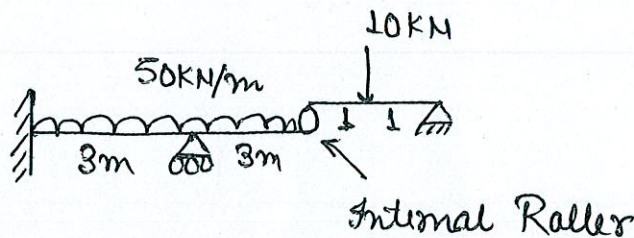 10KN
50KN/m
3m 3m 1 1
Internal Roller